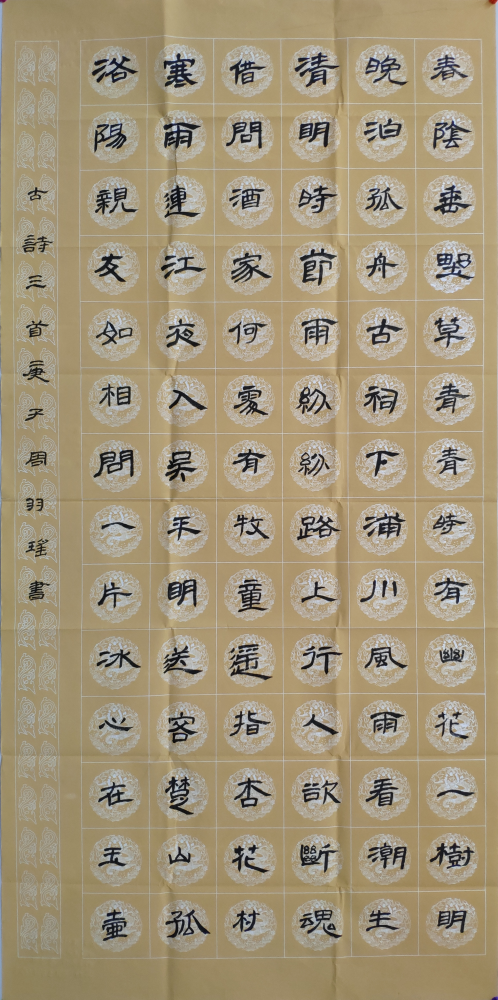 春陰垂野草青青時有幽花一樹明
晚泊孤舟古祠下滿川風雨看潮生
清明時節雨紛紛路上行人欲斷魂
借問酒家何處有牧童遥指杏花村
寒雨連江夜入吳平明送客楚山孤
洛陽親友如相問一片冰心在玉壺
古詩三首庚子周羽瑤書